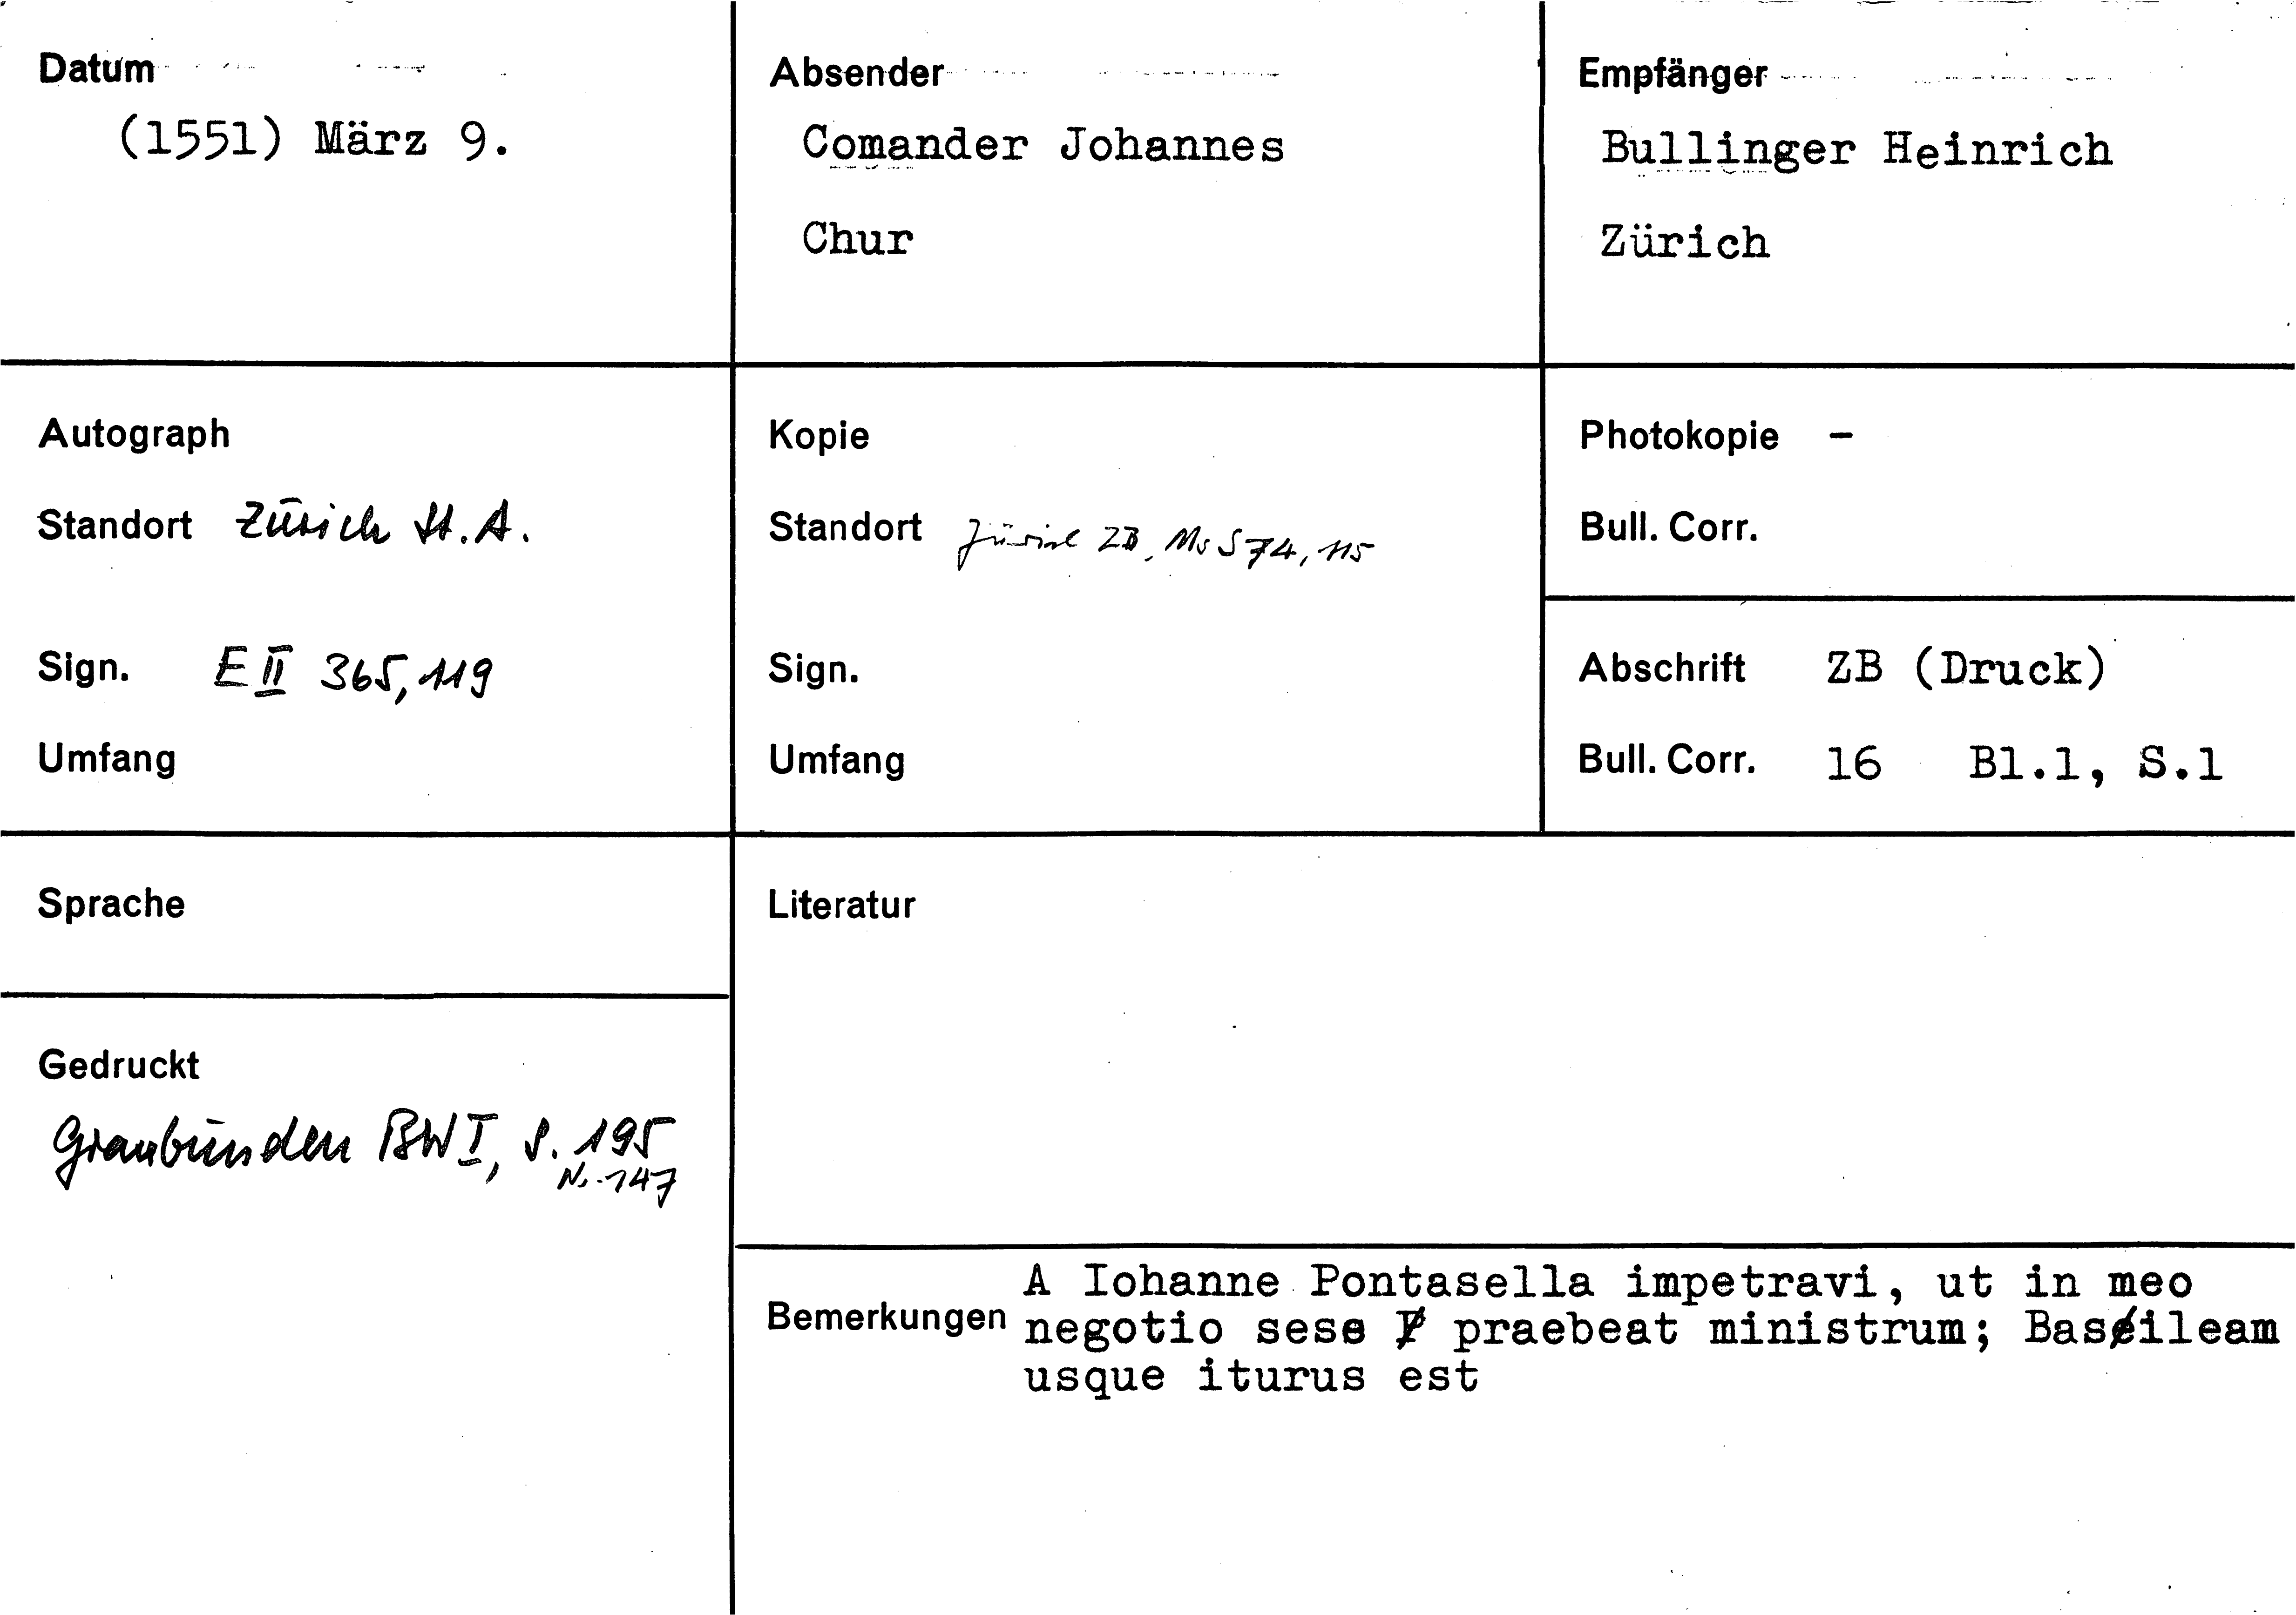 Datum
(1551) März 9.
Absender
Comander Johannes
Chur
Empfänger
Bullinger Heinrich
Zürich
Autograph
Standort Zürich St.A.
Sign. E II 365,119
Umfang
Kopie
Standort Zürich ZB, Ms S 74, 115
Sign.
Umfang
Photokopie -
Bull. Corr.
Abschrift ZB (Druck)
Bull. Corr. 16 Bl.1, S.1
Sprache
Gedruckt
Graubünden BW I, S. 195
Nr. 147
Literatur
Bemerkungen
A Iohanne Pontasella impetravi, ut in meo
negotio sese praebeat ministrum; Basileam
usque iturus est